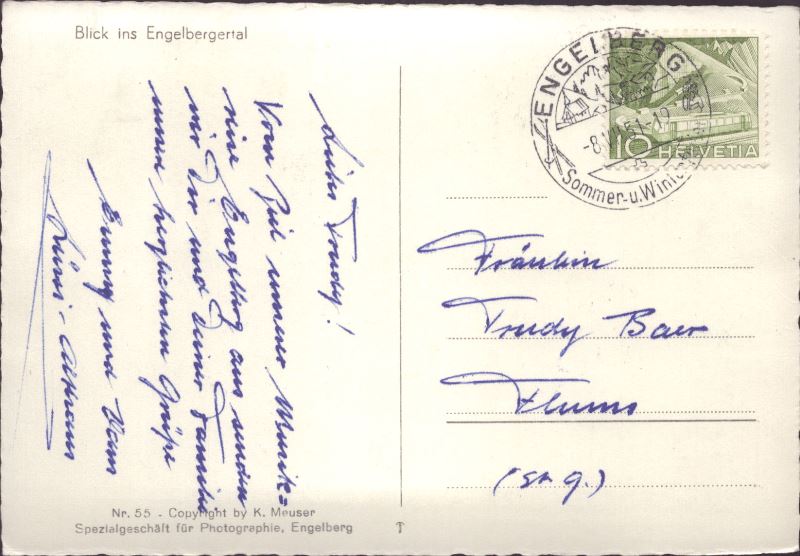 Blick ins Engelbergertal
Liebes Trudy!
Vom Ziel unserer Musik=
reise Engelberg aus senden
wir Dir und Deiner Familie
unsere herzlichsten Grüsse
Emmy und Hans
ENGELBERG
-8.VII.51-19
Sommer-u.Winter
10 HELVETIA
Fräulein
Trudy Baer
Flums
(St. g.)
Nr. 55 - Copyright by K. Meuser
Spezialgeschäft für Photographie, Engelberg